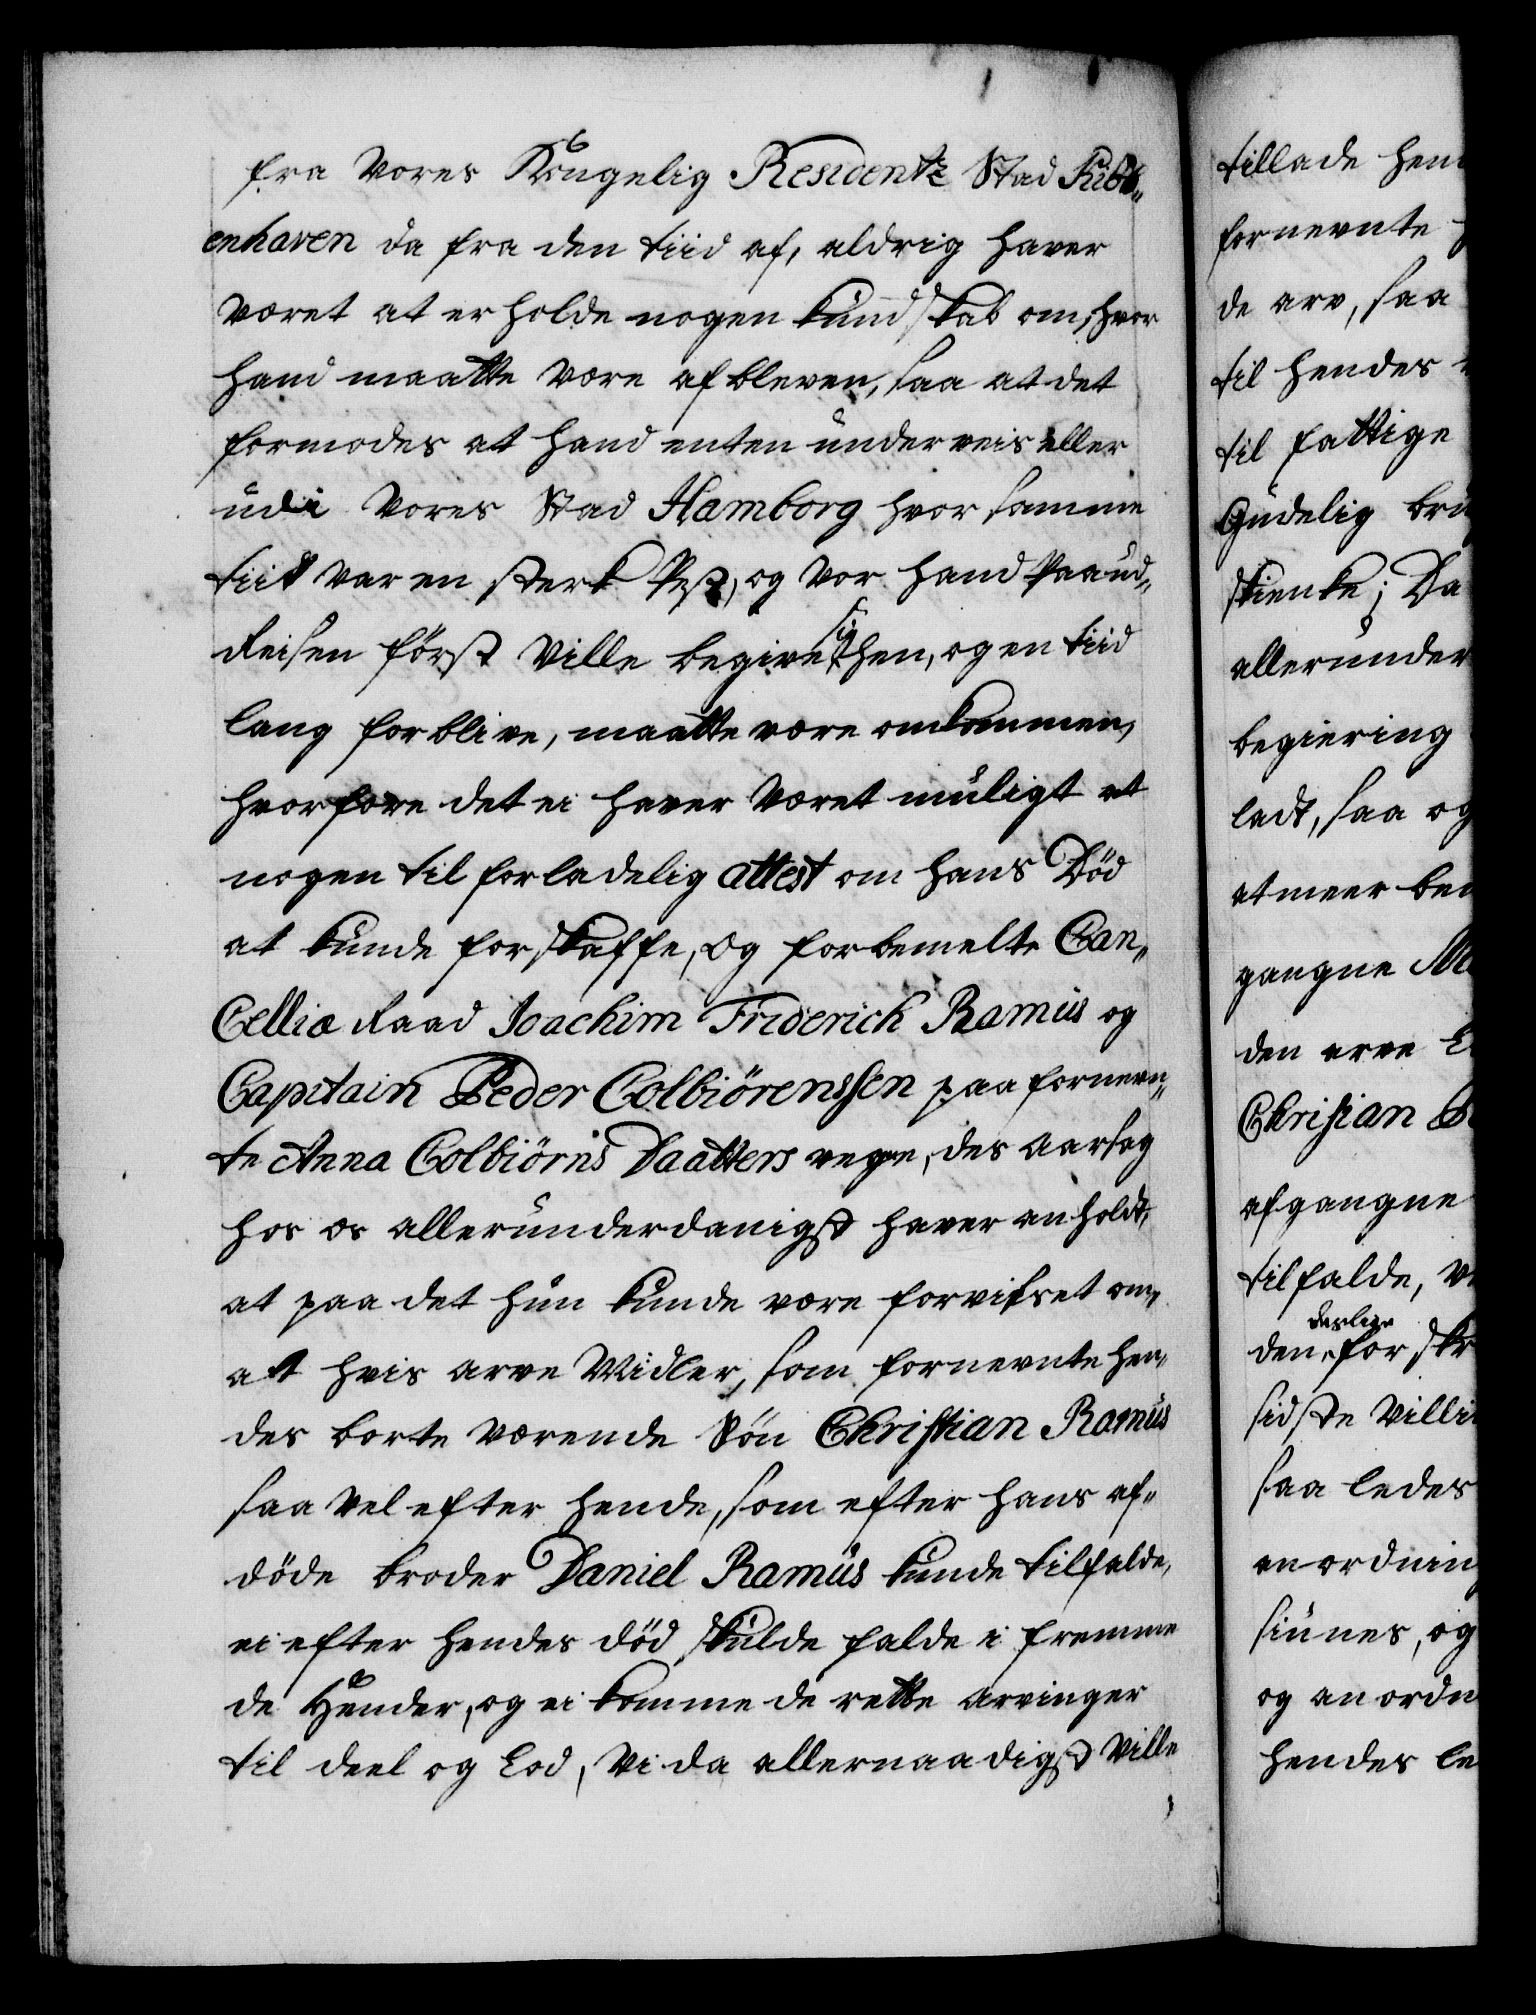 fra Vores Kongelig Residentz Stad Kiöb„
enhaven da fra den tiid af, aldrig haver
været at erholde nogen kundskab om, hvor
hand maatte være afbleven, saa at det
formodes at hand enten underveis eller
udi Vores Stad Hamborg hvor samme
tiid var en sterk Pest, og vor hand Paa ud„
Reisen först ville begive sig hen, og en tiid
lang forblive, maatte være omkommen,
hvorfore det ei haver været muligt at
nogen tilforladelig attest om hans Död
at kunde forskaffe, og forbemelte Can„
Celliæ Raad Joachim Friderich Ramus og
Capitain Peder Colbiörensen paa fornevn„
te Anna Colbiörns Daatters vegne, des aarsag
hos os allerunderdanigst haver anholdt,
at paa det hun kunde være forvisset om,
at hvis arve Midler, som fornevnte hen„
des borte værende Sön Christian Ramus
saa vel efter hende, som efter hans af„
döde broder Daniel Ramus kunde tilfalde,
ei efter hendes död skulde falde i fremme
de Hænder, og ei komme de rette arvinger
til deel og Lod, Vi da allernaadigst ville
tillade hen
fornevnte
de arv, saa
til hendes
til fattige
Gudelig bru
skienke; Da
allerunder
begiering
ladt, saa og
at meer be
gangne
den arve
Christian
afgangne
tilfalde,
deslige
den for skr
sidste Villi
saaledes
anordning
siunes, og
og anordn
hendes le